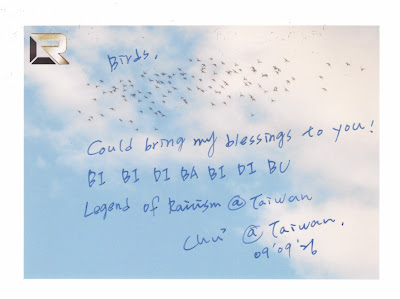 R
Birds,
Could bring my blessings to you!
BI BI DI BA BI DI BU
Legend of Rainism @ Taiwan
Chu @ Taiwan.
09'09'26